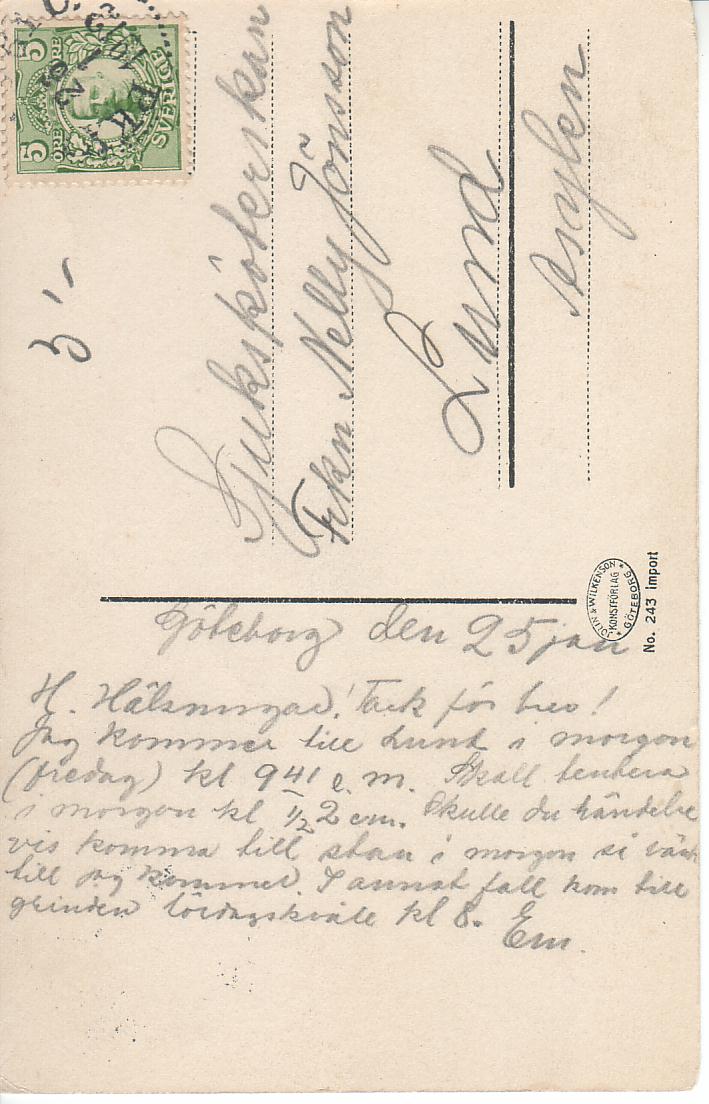 5 ÖRE 5
SVERIGE
PK
3'-
Sjuksköterskan
Frkn Nelly Jönsson
Lund
Asylen
JOHN & WILKENSON
KONSTFÖRLAG
GÖTEBORG
No. 243 import
Göteborg den 25 jan
H. Hälsningar! Tack för brev!
Jag kommer till Lund i morgon
(fredag) kl 9 41 e. m. Skall tentera
i morgon kl 1/2 2 em. Skulle du händelse
vis komma till stan i morgon så vänta
till jag kommer. I annat fall kom till
grinden lördagskväll kl 8. Em.